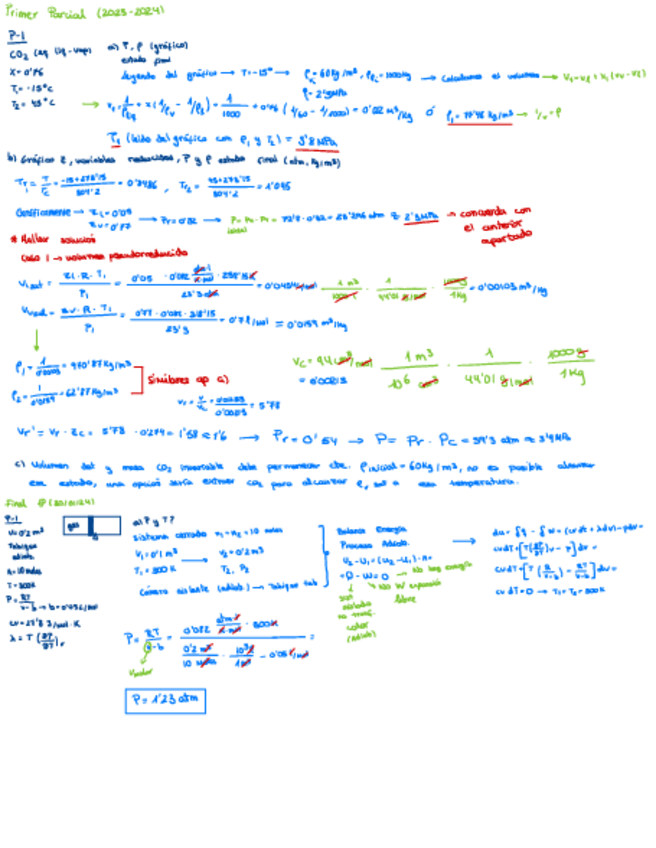 Primer Parcial (2023-2024)
P-1
CO2 (eq liq-vap)
X = 0'76
T1 = -15°C
T2 = 45°C
a) P, ρ (gráfico)
estado final
Leyendo del gráfico → T = -15° → ρv = 60 kg/m3, ρL = 1000 kg → Calculamos el volumen → V1 = vL + X1 (vv - vL)
P = 2'3 MPa
→ v1 = 1/ρL + X (1/ρv - 1/ρL) = 1/1000 + 0'76 (1/60 - 1/1000) = 0'02 m3/kg ó ρ1 = 77'46 kg/m3 → 1/v = ρ
(leído del gráfico con ρ1 y T2) = 3'8 MPa
b) Gráfico z, variables reducidas, P y ρ estado final (atm, kg/m3)
Tr1 = T/Tc = -15+273'15/304'2 = 0'8486, Tr2 = 45+273'15/304'2 = 1'045
Gráficamente → zL = 0'05
zv = 0'77 → Pr = 0'32 → = 23'296 atm ≈ 2'3 MPa → concuerda con
el anterior
apartado
* Hallar solución
Caso 1 → volumen pseudorreducido
V1sat = zL · R · T1/P1 = 0'05 · 0'082 atm·l/K·mol · 258'15K/23'3 atm = · 1 m3/1000 l · 1/44'01 g/mol · 1000g/1kg = 0'00103 m3/kg
= zv · R · T1/P1 = = 0'7 l/mol = 0'0159 m3/kg
ρ1 = = 970'87 kg/m3
ρ2 = 1/0'0159 = 62'87 kg/m3
Similares ap a)
Vc = 94 cm3/mol · 1 m3/10^6 cm3 · 1/44'01 g/mol · 1000g/1kg
= 0'00213
vr = v/vc = = 5'78
Vr' = Vr · zc = 5'78 · 0'274 = 1'58 ≈ 1'6 → Pr = 0'54 → P = Pr · Pc = 39'3 atm ≈ 3'9 MPa
c) Volumen del y masa CO2 invariable debe permanecer cte. ρ inicial = 60 kg/m3, no es posible alcanzar
ese estado, una opción sería extraer CO2 para alcanzar a esa temperatura.
Final
P-1
V = 0'2 m3
Tabique
adiab.
n = 10 moles
T = 300K
P = RT/v-b → b = 0'05 l/mol
cv = J/mol·K
λ = T (∂P/∂T)v
gas
a) P y T?
Sistema cerrado n1 = n2 = 10 moles
V1 = 0'1 m3 → V2 = 0'2 m3
T1 = 300 K T2, P2
Cámara aislante (adiab) → Tabique tab
Balance Energía
Proceso Adiab.
U2 - U1 = (u2 - u1) · n =
= Q - W = 0 → No hay energía
No W expansión
libre
aislado
no transf.
calor
(adiab)
→ du = δq - δw = (cv dt + λ dv) - pdv =
cv dT + [T(∂P/∂T)v - P] dv =
cv dT + [T (R/v-b) - RT/v-b] dv =
cv dT = 0 → T1 = T2 = 300K
P = RT/v-b = 0'082 atm·l/K·mol · 300K / 0'2 m3/10 moles · 10^3 l/1 m3 - 0'05 l/mol =
Vmolar
P = 1'23 atm